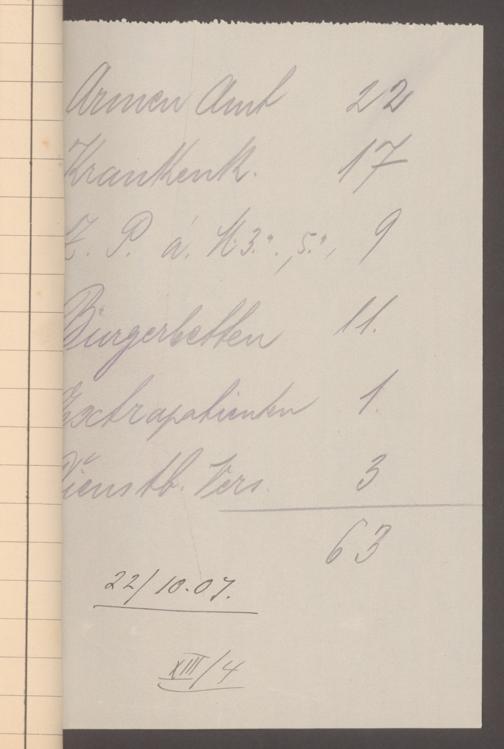 Armen Amt 22
Krankenk. 17
Z. P. á. M. 3.". 5."., 9
Bürgerbetten 11.
Extrapatienten 1.
Dienstb. Vers. 3
63
22/10.07.
XIII/4